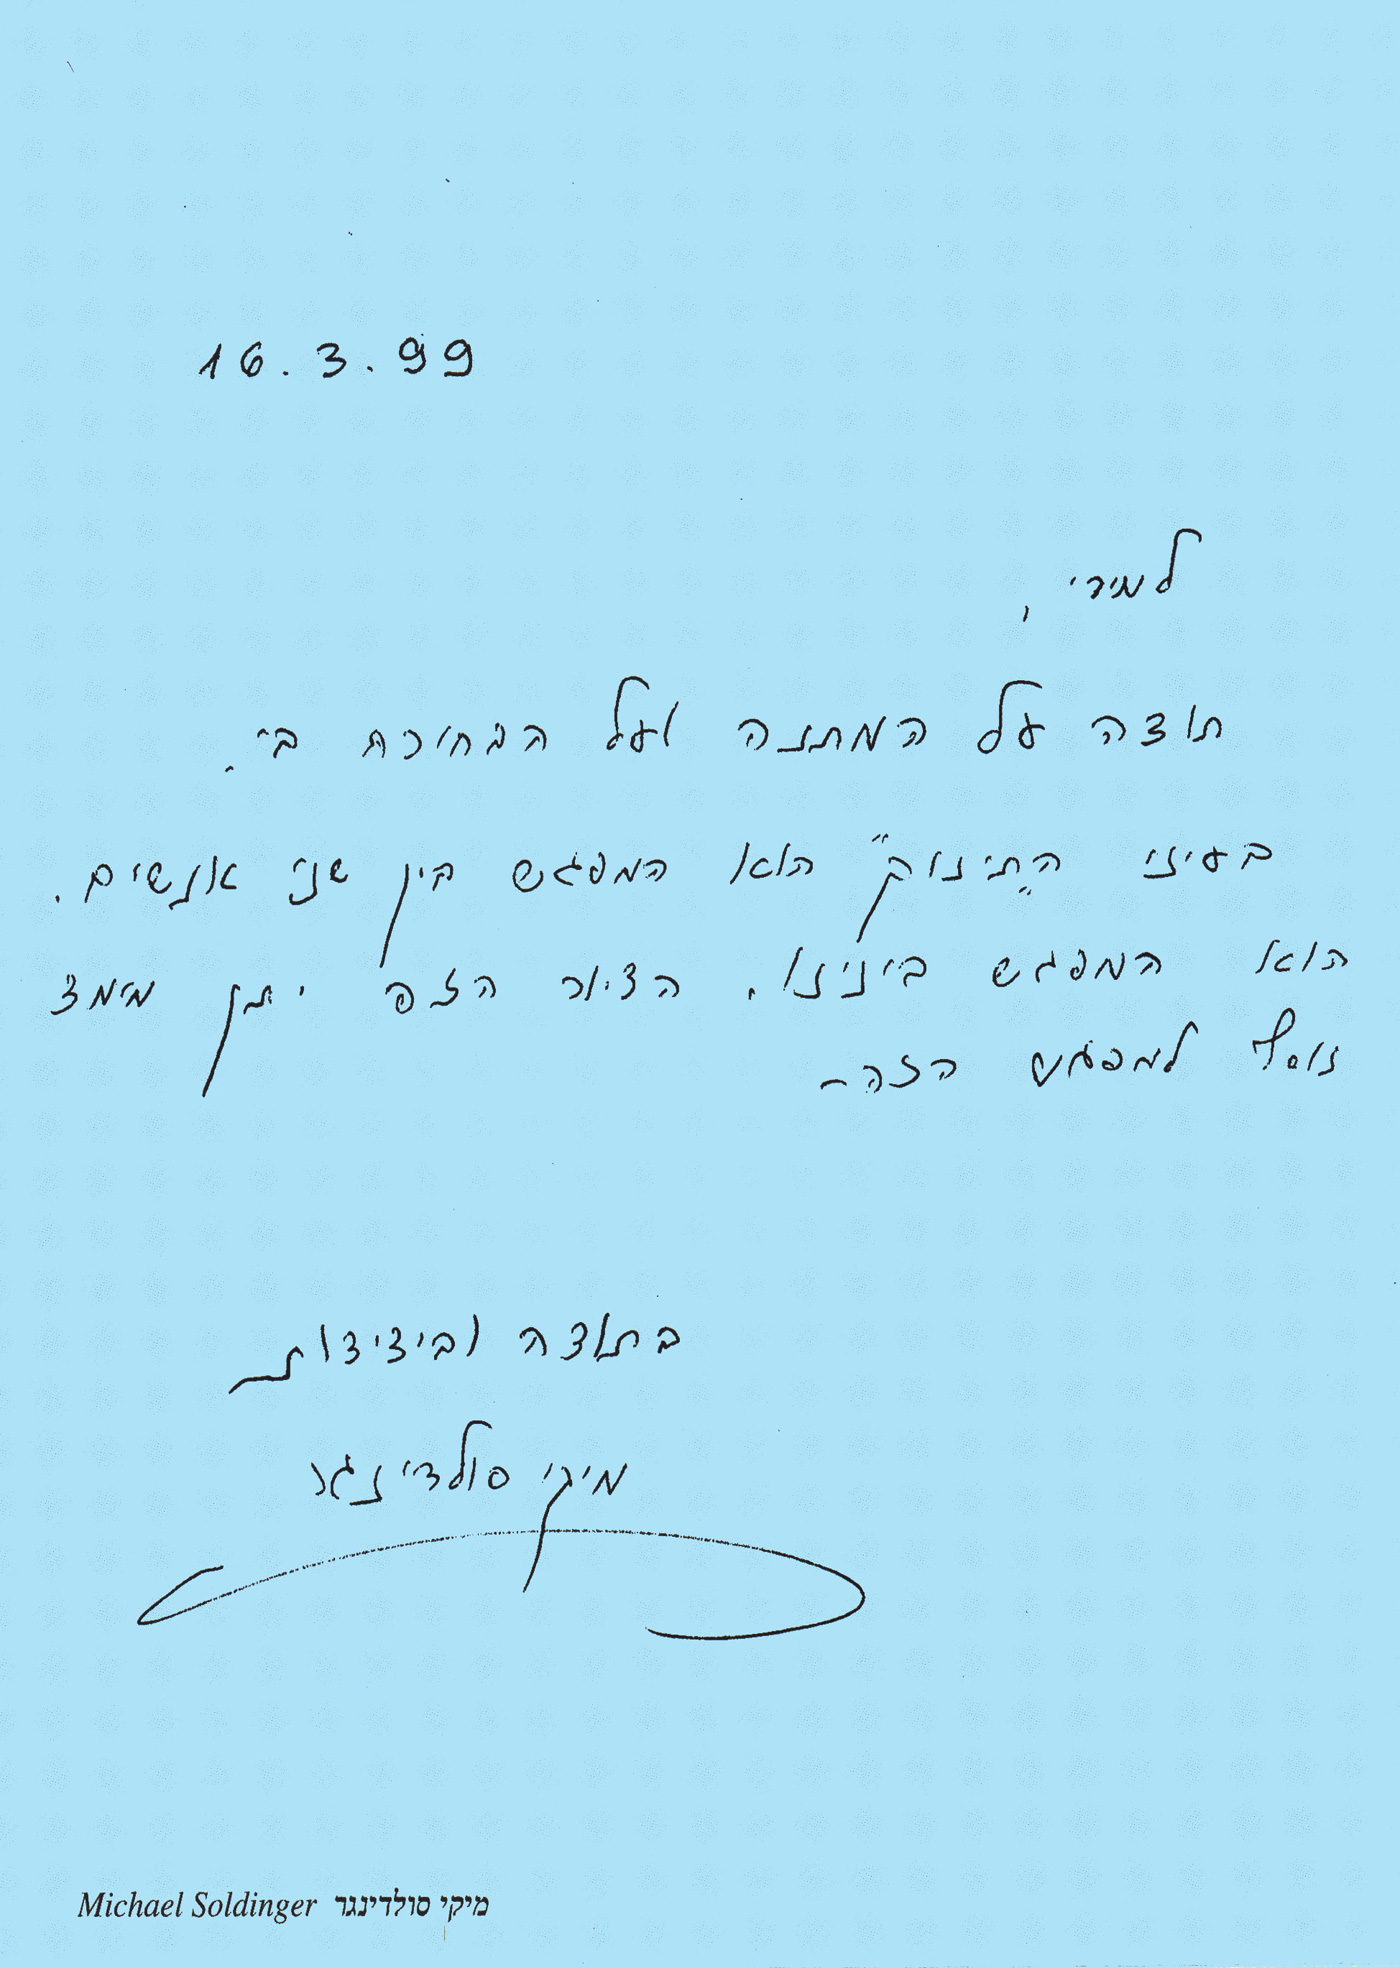 16.3.99
למירי,
תודה על המתנה ועל הבחירה בי.
בעיני ה"תינוק" הוא המפגש בין שני אנשים.
הוא המפגש בינינו. הציור הזה יתן מימד
נוסף למפגש הזה-
בתודה ובידידות
מיקי סולדינגר
Michael Soldinger מיקי סולדינגר